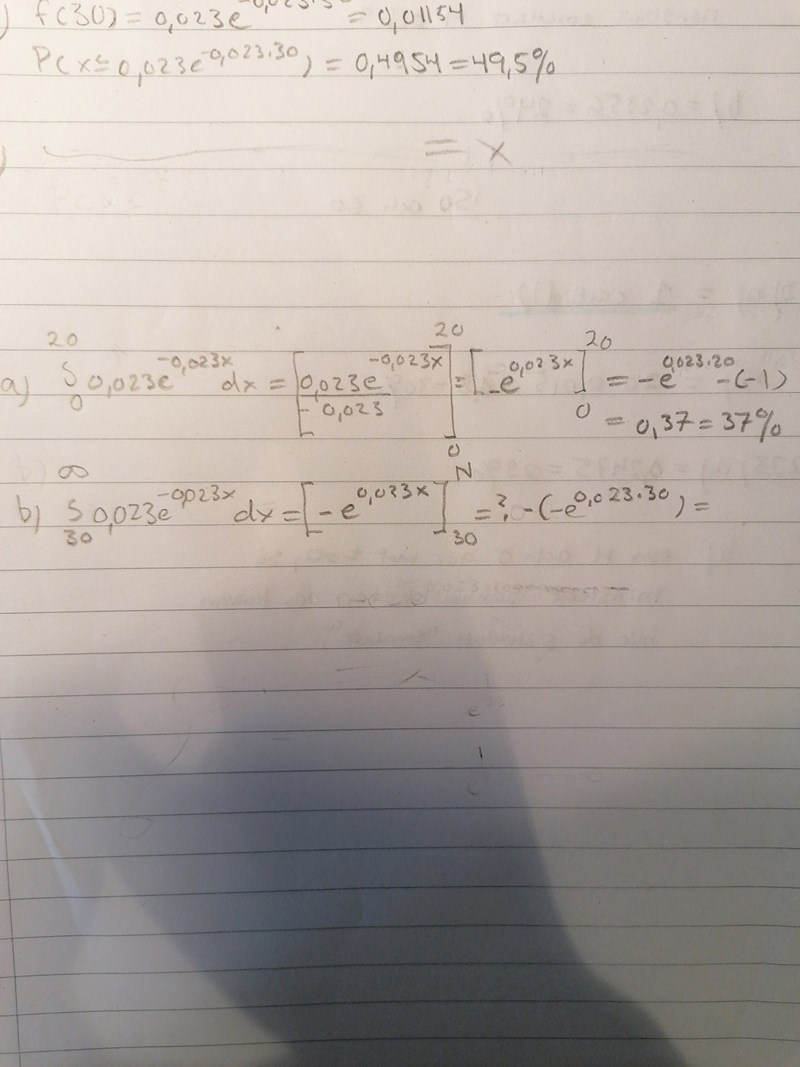 ) f(30) = 0,023e^-0,023·3 = 0,01154
P(x≤0,023e^-0,023·30) = 0,4954 = 49,5%
) = x
a) ∫_0^20 0,023e^-0,023x dx = [0,023e^-0,023x / -0,023]_0^20 = [-e^0,023x]_0^20 = -e^0,023·20 -(-1)
= 0,37 = 37%
b) ∫_30^∞ 0,023e^-0,023x dx = [-e^0,023x]_30^N = ? -(-e^0,023·30) =